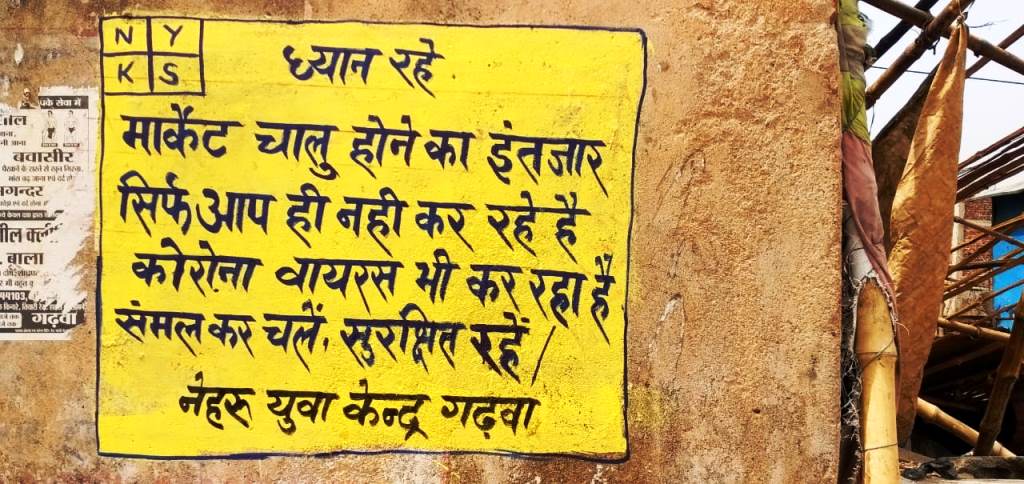 N Y
K S
ध्यान रहे
मार्केट चालु होने का इंतजार
सिर्फ आप ही नही कर रहे है
कोरोना वायरस भी कर रहा है
संमल कर चलें, सुरक्षित रहें /
नेहरू युवा केन्द्र गढ़वा
बवासीर
बाला
गढ़वा